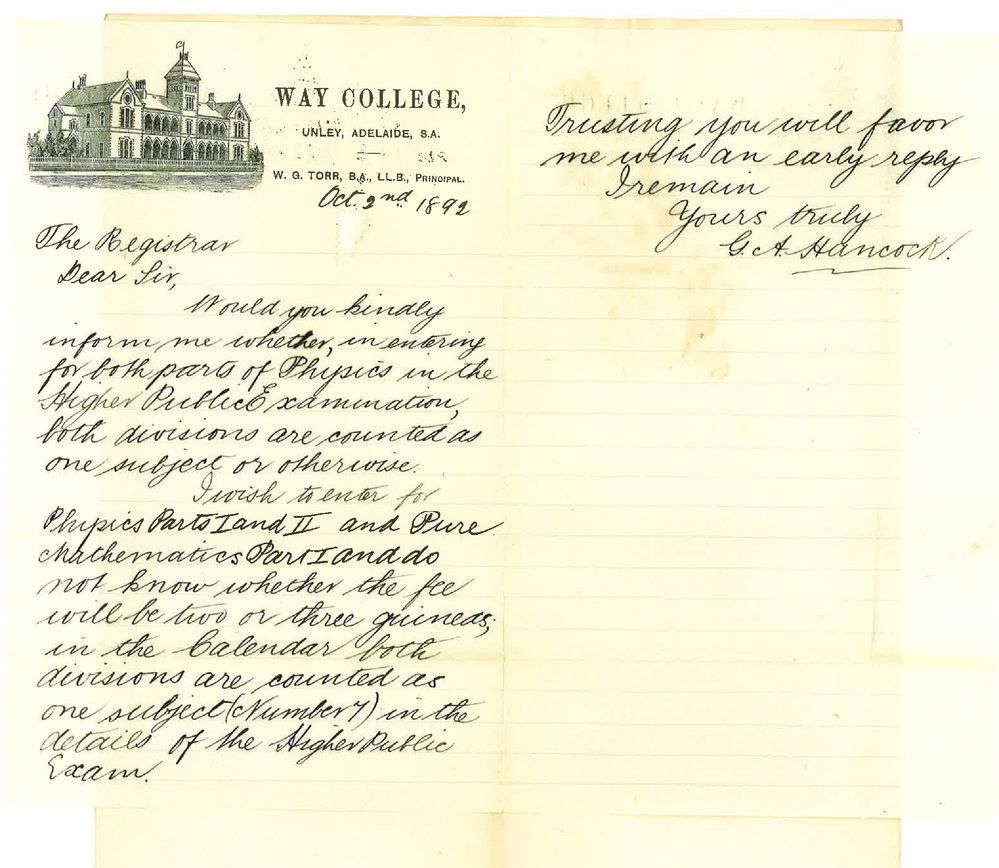 WAY COLLEGE,
UNLEY, ADELAIDE, S.A.
W. G. TORR, B.A., LL.B., PRINCIPAL.
Oct. 2nd 1892
The Registrar
Dear Sir,
Would you kindly
inform me whether, in entering
for both parts of Physics in the
Higher Public Examination,
both divisions are counted as
one subject or otherwise.
I wish to enter for
Physics Parts I and II and Pure
Mathematics Part I and do
not know whether the fee
will be two or three guineas;
in the Calendar both
divisions are counted as
one subject (Number 7) in the
details of the Higher Public
Exam.
Trusting you will favor
me with an early reply
I remain
Yours truly
G. A. Hancock.